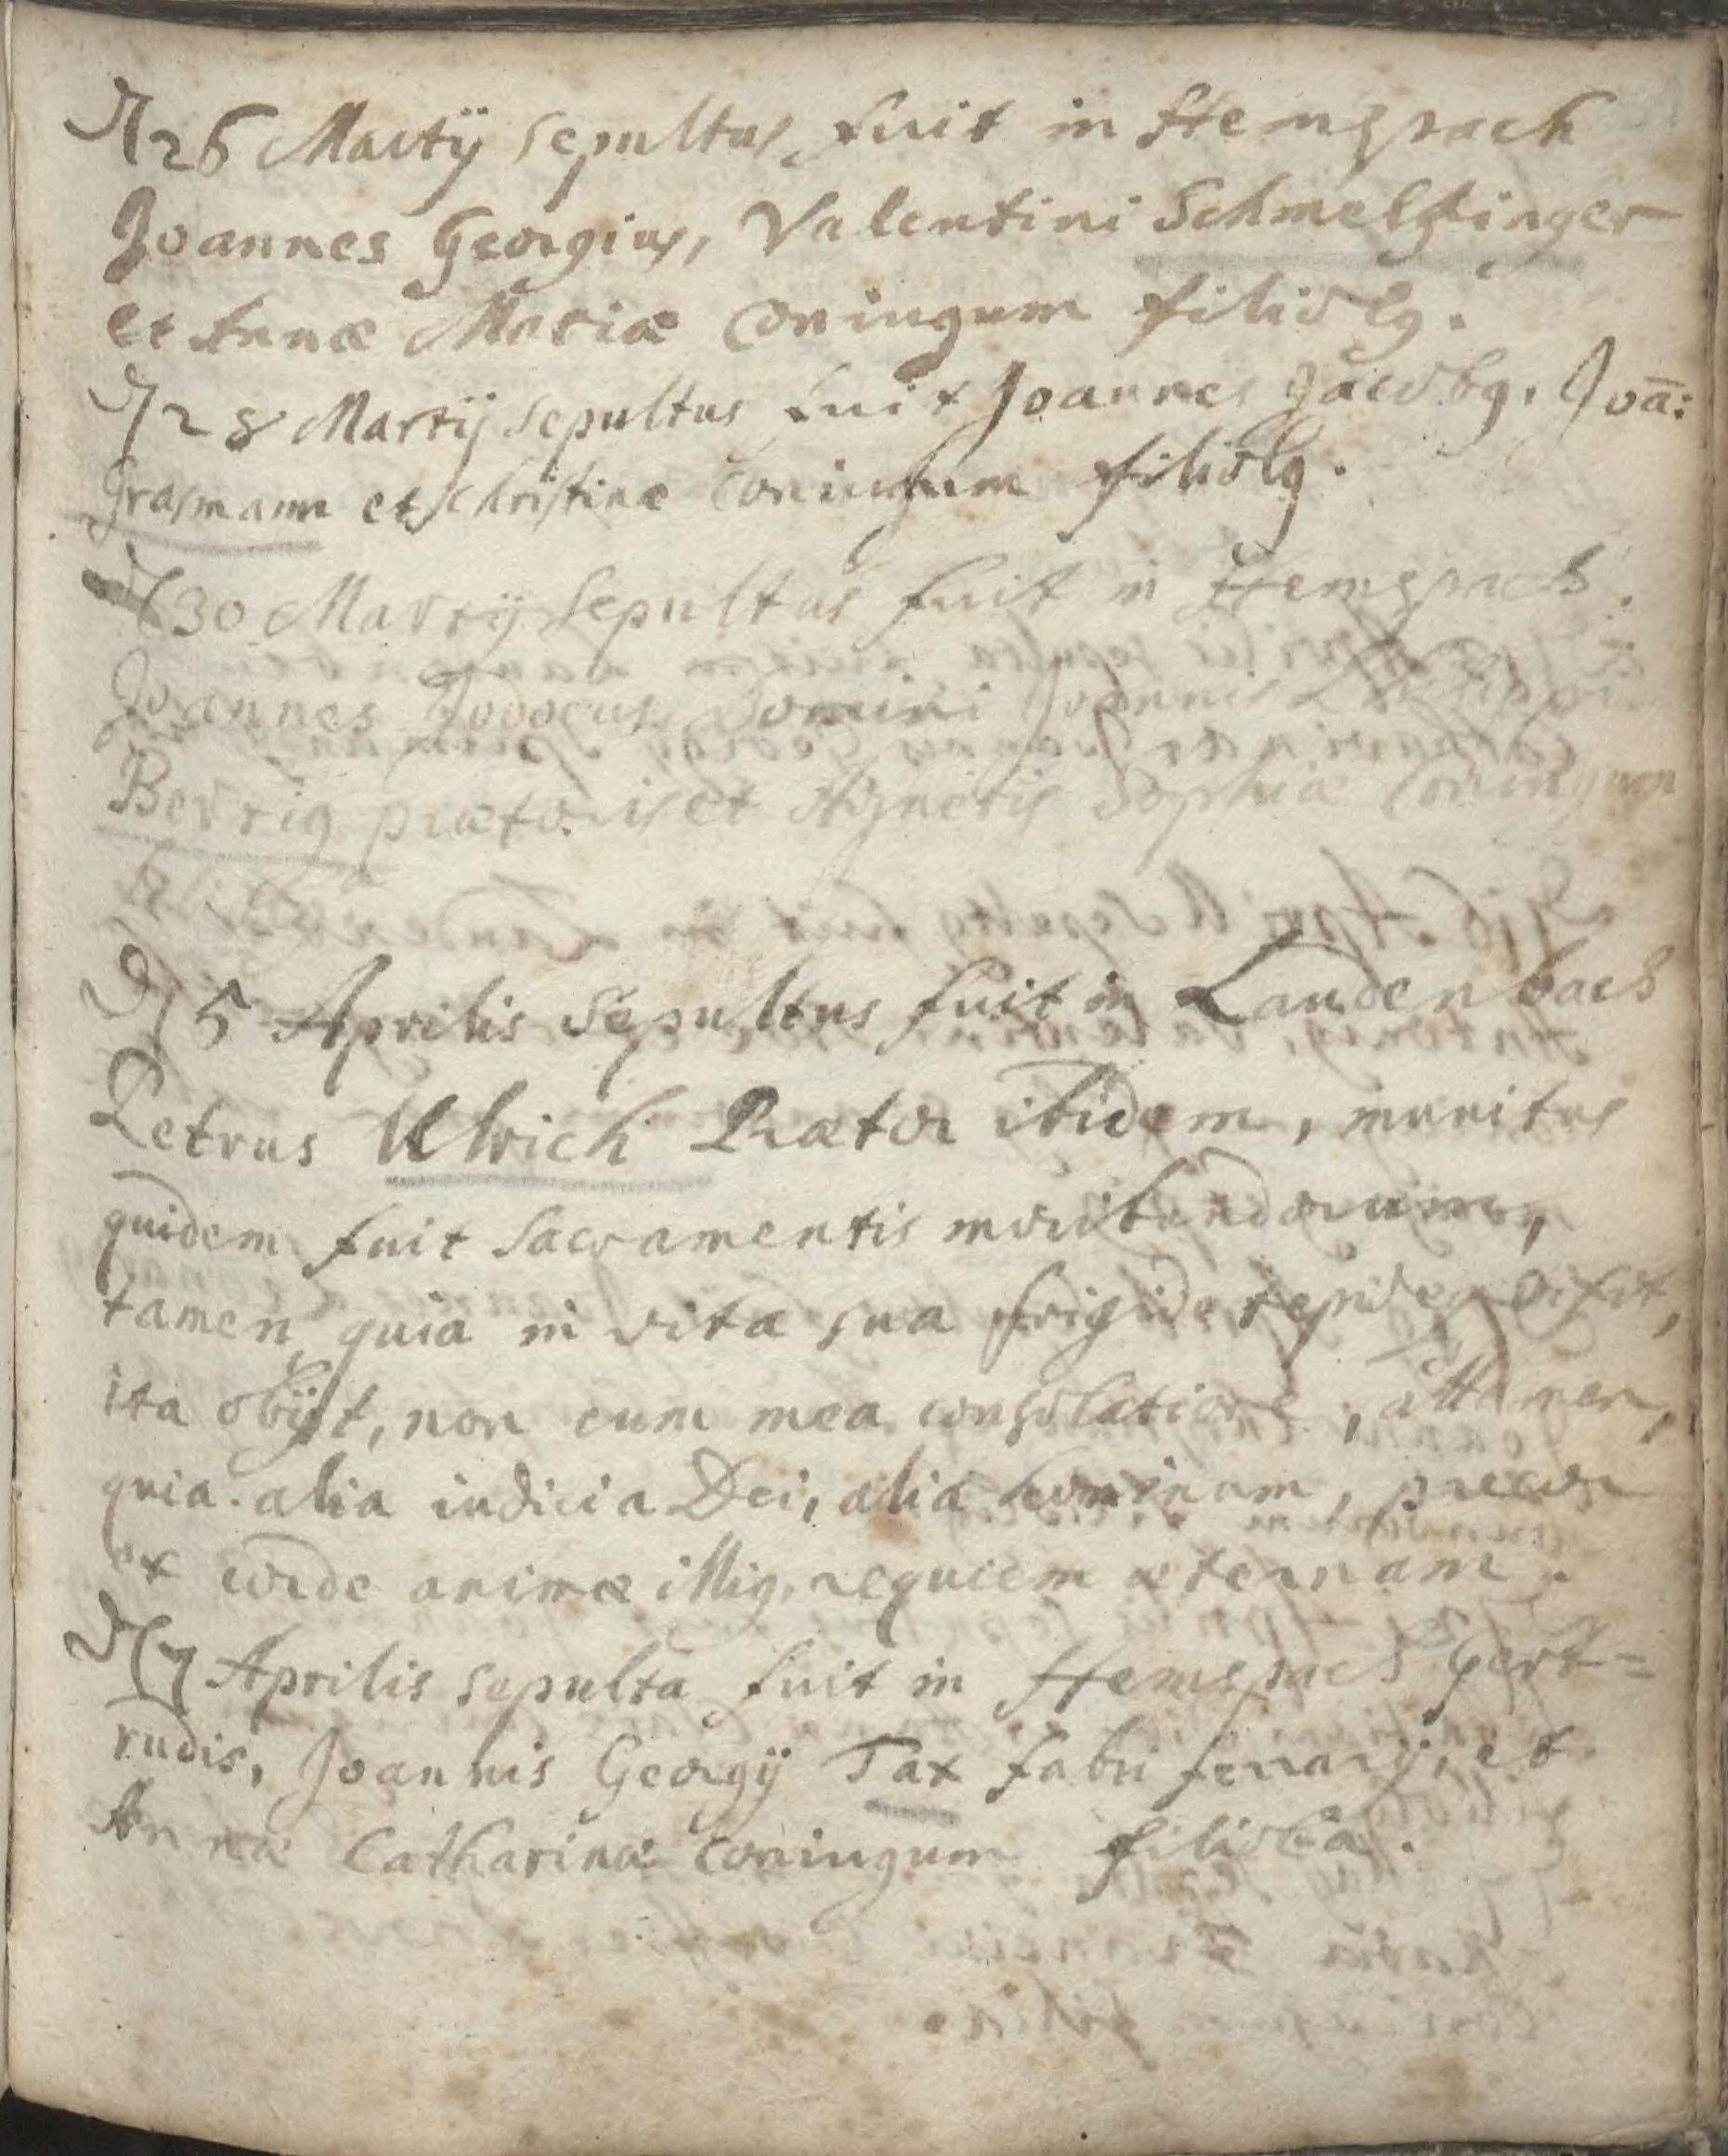 D 26 Martij sepultus fuit in Hemspach
Joannes Georgius, Valentini Schmeltzinger
et Annæ Mariæ coniugum filiolq.
D 28 Martij sepultus fuit Joannes Jacobq, Joā:
Grasmann et Christinæ coniugum filiolq.
D 30 Martij sepultus fuit in Hemspach
Joannes Jodocus Domini Joannis
Bertig prætoris et Agnetis Sophiæ coniugum
D 5 Aprilis sepultus fuit in Laudenbach
Petrus Ulrich Prætor ibidem, munitus
quidem fuit sacramentis moribundorum,
tamen quia in vita sua frigide tepide vixit,
ita obijt, non cum mea consolatione, attamen,
quia alia iudicia Dei, alia hominum, precor
ex corde animæ illiq, requiem æternam.
D 7 Aprilis sepulta fuit in Hemspach Gert=
rudis, Joannis Georgij Tax fabri ferrarij, et
Annæ Catharinæ coniugum filiola.